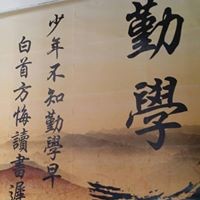 勤學
少年不知勤學早
白首方悔讀書遲